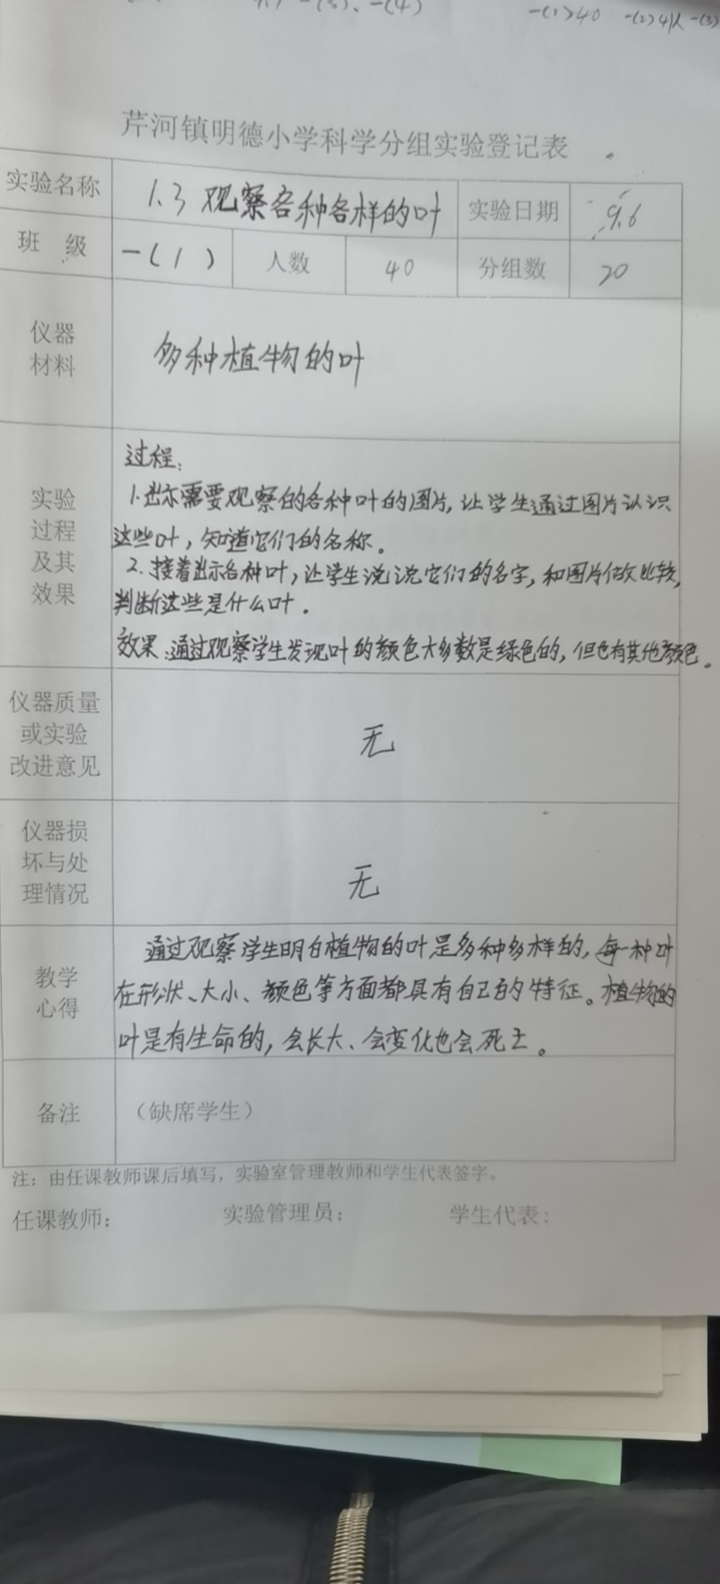 一(3)、一(4)
一(1)40 一(2)41人 一(3)
芹河镇明德小学科学分组实验登记表
实验名称 1.3 观察各种各样的叶 实验日期 9.6
班 级 一(1) 人数 40 分组数 20
仪器
材料
多种植物的叶
实验
过程
及其
效果
过程:
1.出示需要观察的各种叶的图片,让学生通过图片认识
这些叶,知道它们的名称。
2.接着出示各种叶,让学生说说它们的名字,和图片做比较,
判断这些是什么叶.
效果:通过观察学生发现叶的颜色大多数是绿色的,但也有其他颜色。
仪器质量
或实验
改进意见
无
仪器损
坏与处
理情况
无
教学
心得
通过观察学生明白植物的叶是多种多样的,每一种叶
在形状、大小、颜色等方面都具有自己的特征。植物的
叶是有生命的,会长大、会变化也会死亡。
备注 (缺席学生)
注:由任课教师课后填写,实验室管理教师和学生代表签字。
任课教师: 实验管理员: 学生代表: